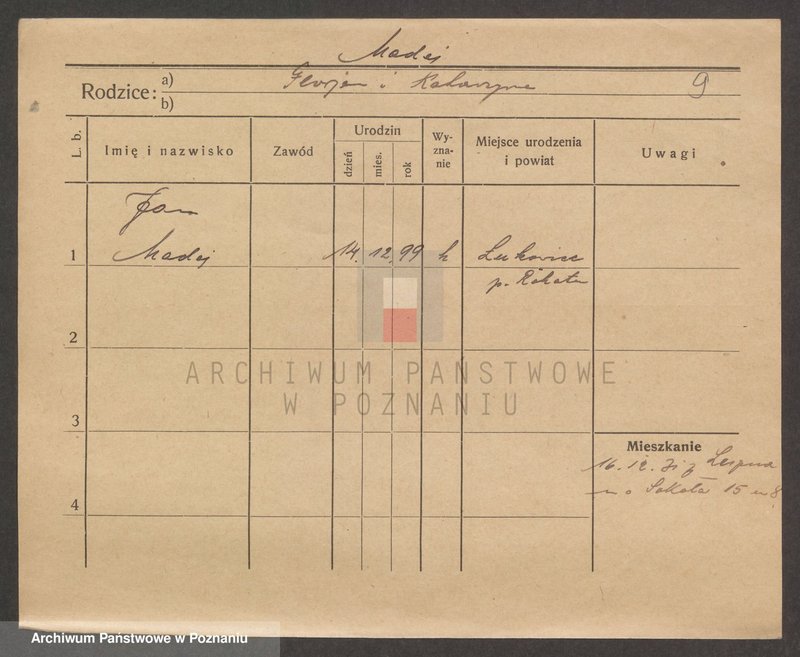 Madej
Rodzice: a) Florjan i Katarzyna 9
b)
L. b.
Imię i nazwisko
Zawód
Urodzin
dzień
mies.
rok
Wy-
zna-
nie
Miejsce urodzenia
i powiat
Uwagi
Jan
1 Madej 14. 12. 99 k Łukowiec
p.
2
ARCHIWUM PAŃSTWOWE
W POZNANIU
3
Mieszkanie
16. 12. 31 z
Sokoła 15 m 8
4
Archiwum Państwowe w Poznaniu